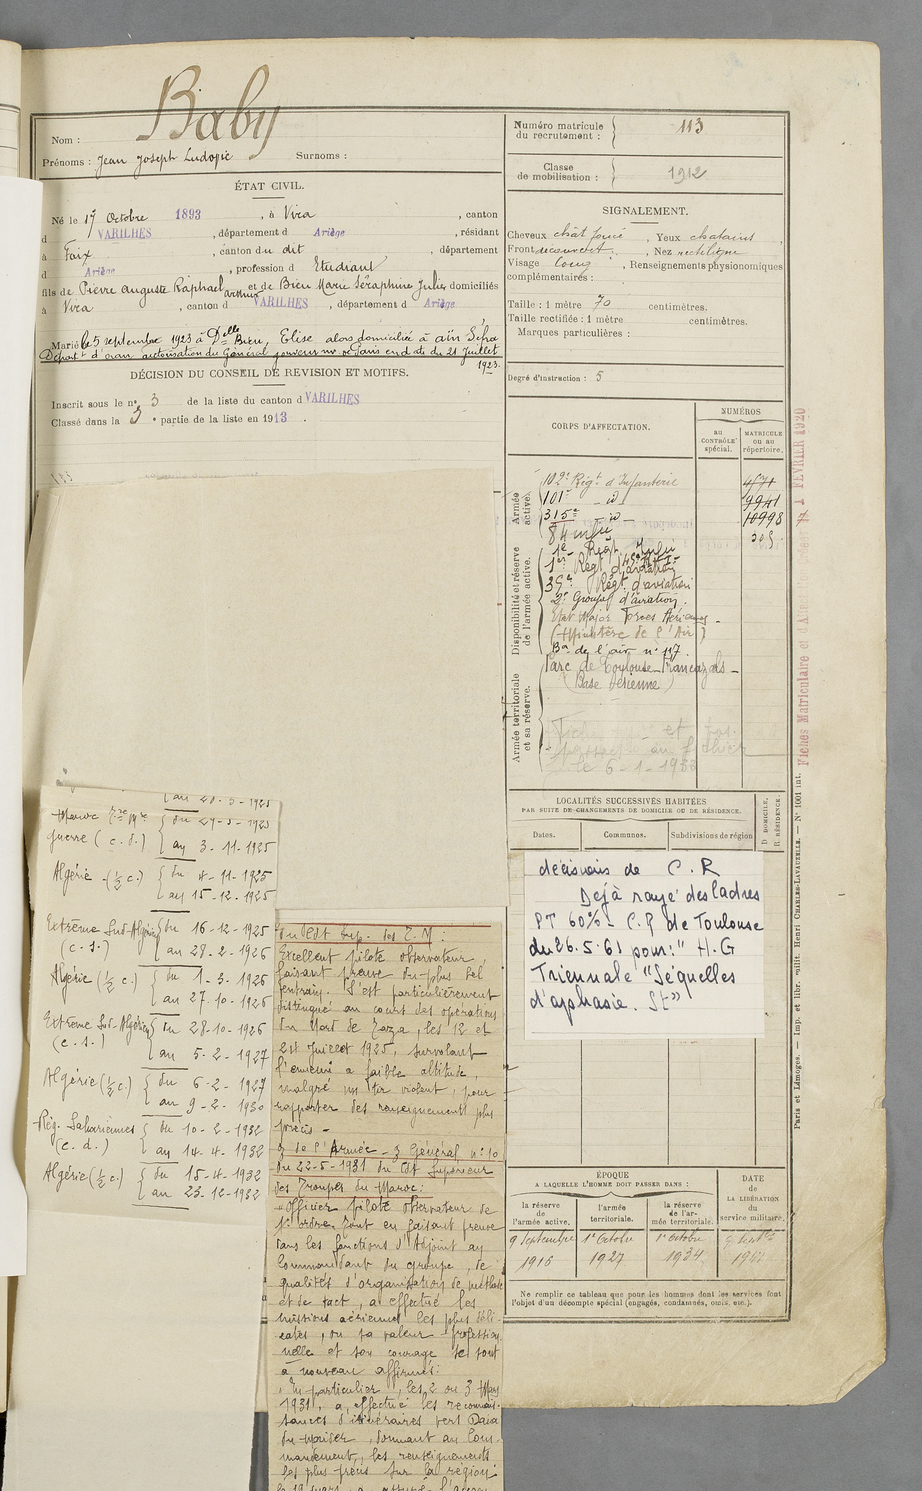 Baby
Nom :
Prénoms : Jean Joseph Ludovic Surnoms :
ÉTAT CIVIL.
Né le 17 Octobre 1893, à Vira, canton
d VARILHES, département d Ariège, résidant
à Foix, canton du dit, département
d Ariège, profession d Etudiant
fils de Pierre Auguste Raphael Arthur et de Bieu Marie Séraphine Julie domiciliés
à Vira, canton d VARILHES, département d Ariège
Marié le 5 septembre 1923 à Delle Bieu, Elise alors domiciliée à aïn Sefra
Départt d'oran autorisation du Général gouverneur de Paris en date du 21 Juillet
1923.
DÉCISION DU CONSEIL DE REVISION ET MOTIFS.
Inscrit sous le n° 3 de la liste du canton d VARILHES
Classé dans la 3e partie de la liste en 1913.
au 28-3-1925
Maroc
guerre (c.d.)
au 3-11-1925
Algérie (½ c.) du 4-11-1925
au 15-12-1925
Extrême Sud-Algérien du 16-12-1925
(c.s.) au 28-2-1926
Algérie (½ c.) du 1-3-1926
au 27-10-1926
Extrême Sud-Algérien du 28-10-1926
(c.s.) au 5-2-1927
Algérie (½ c.) du 6-2-1927
au 9-2-1930
Rég. Sahariennes du 10-2-1932
(c.d.) au 14-4-1932
Algérie (½ c.) du 15-4-1932
au 23-12-1932
du Cdt Sup. des T. M :
Excellent pilote observateur,
faisant preuve du plus bel
entrain. S'est particulièrement
distingué au cours des opérations
du Nord de Taza, les 12 et
24 Juillet 1925, survolant
l'ennemi à faible altitude,
malgré un tir violent, pour
rapporter des renseignements plus
précis -
de l'Armée - Général n° 10
du 22-5-1931 du Cdt Supérieur
des Troupes du Maroc :
"Officier pilote observateur de
1er ordre. Tout en faisant preuve
dans les fonctions d'Adjoint au
Commandant du groupe, de
qualités d'organisation de méthode
et de tact, a effectué les
missions aériennes les plus déli-
cates, où sa valeur profession-
nelle et son courage se sont
à nouveau affirmés.
En particulier, les 2 ou 3 Mars
1931, a effectué les reconnais-
sances d'itinéraires vers Daïa
donnant au Com-
mandement, les renseignements
les plus précis sur la région
le 19 mars, a assuré
Numéro matricule
du recrutement : 113
Classe
de mobilisation : 1912
SIGNALEMENT.
Cheveux chât foncé, Yeux chatains
Front découvert, Nez rectiligne
Visage long, Renseignements physionomiques
complémentaires :
Taille : 1 mètre 70 centimètres.
Taille rectifiée : 1 mètre centimètres.
Marques particulières :
Degré d'instruction : 5
CORPS D'AFFECTATION.
NUMÉROS
AU CONTRÔLE spécial.
MATRICULE ou au répertoire.
Armée active.
102e Régt d'Infanterie
101e - id 9941
315e - id 10998
84 Infie
Disponibilité et réserve de l'armée active.
1er Régt d'aviation
35e Régt d'aviation
2e Groupe d'aviation.
Etat Major Forces Aériennes -
(Ministère de l'Air)
Bon de l'air n° 117.
Armée territoriale et sa réserve.
Parc de Toulouse-Francazals -
(Base Aérienne)
le 6-1-1933
Fiches Matriculaire et d'Affectation 1 FEVRIER 1920
LOCALITÉS SUCCESSIVES HABITÉES
PAR SUITE DE CHANGEMENTS DE DOMICILE OU DE RÉSIDENCE.
Dates. Communes. Subdivisions de région
D. DOMICILE. R. RÉSIDENCE.
décisions de C.R
Déjà rayé des Cadres
PT 60% - C.R de Toulouse
du 26.5.61 pour : " H.G
Triennale "Séquelles
d'aphasie. St"
ÉPOQUE
A LAQUELLE L'HOMME DOIT PASSER DANS :
DATE de LA LIBÉRATION du service militaire.
la réserve de l'armée active. l'armée territoriale. la réserve de l'armée territoriale.
9 Septembre 1er Octobre 1er octobre
1916 1927 1934
Ne remplir ce tableau que pour les hommes dont les services font
l'objet d'un décompte spécial (engagés, condamnés, omis, etc.).
Paris et Limoges. — Imp. et libr. milit. Henri CHARLES-LAVAUZELLE. — N° 1001 int.